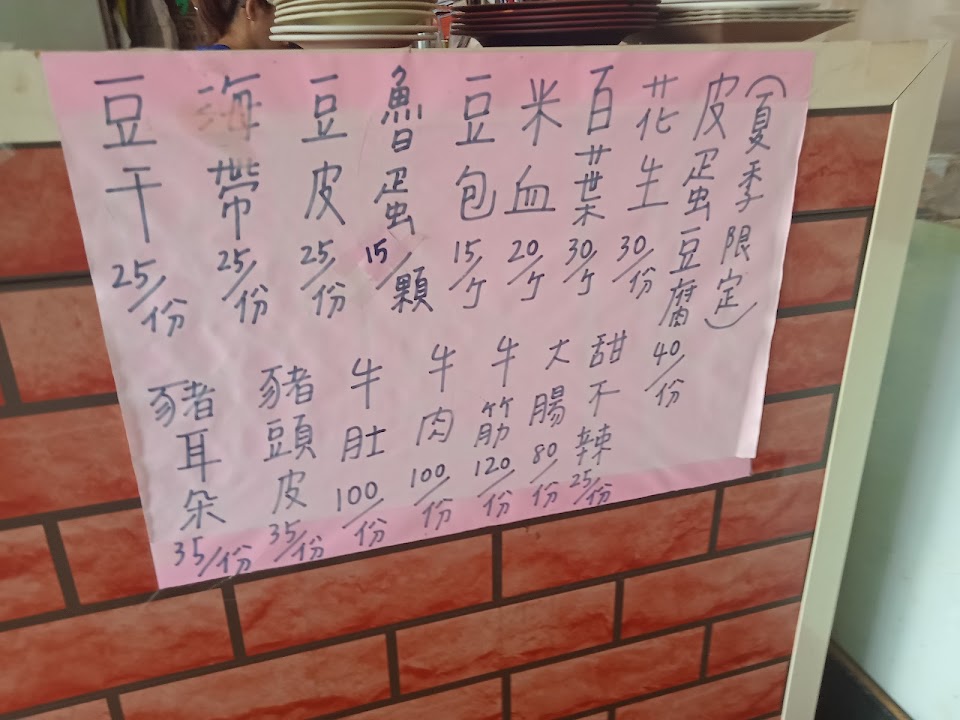 (夏季限定)
皮蛋豆腐 40/份
花生 30/份
百葉 30/ケ
米血 20/ケ
豆包 15/ケ
魯蛋 15/顆
豆皮 25/份
海帶 25/份
豆干 25/份
甜不辣 25/份
大腸 80/份
牛筋 120/份
牛肉 100/份
牛肚 100/份
豬頭皮 35/份
豬耳朵 35/份